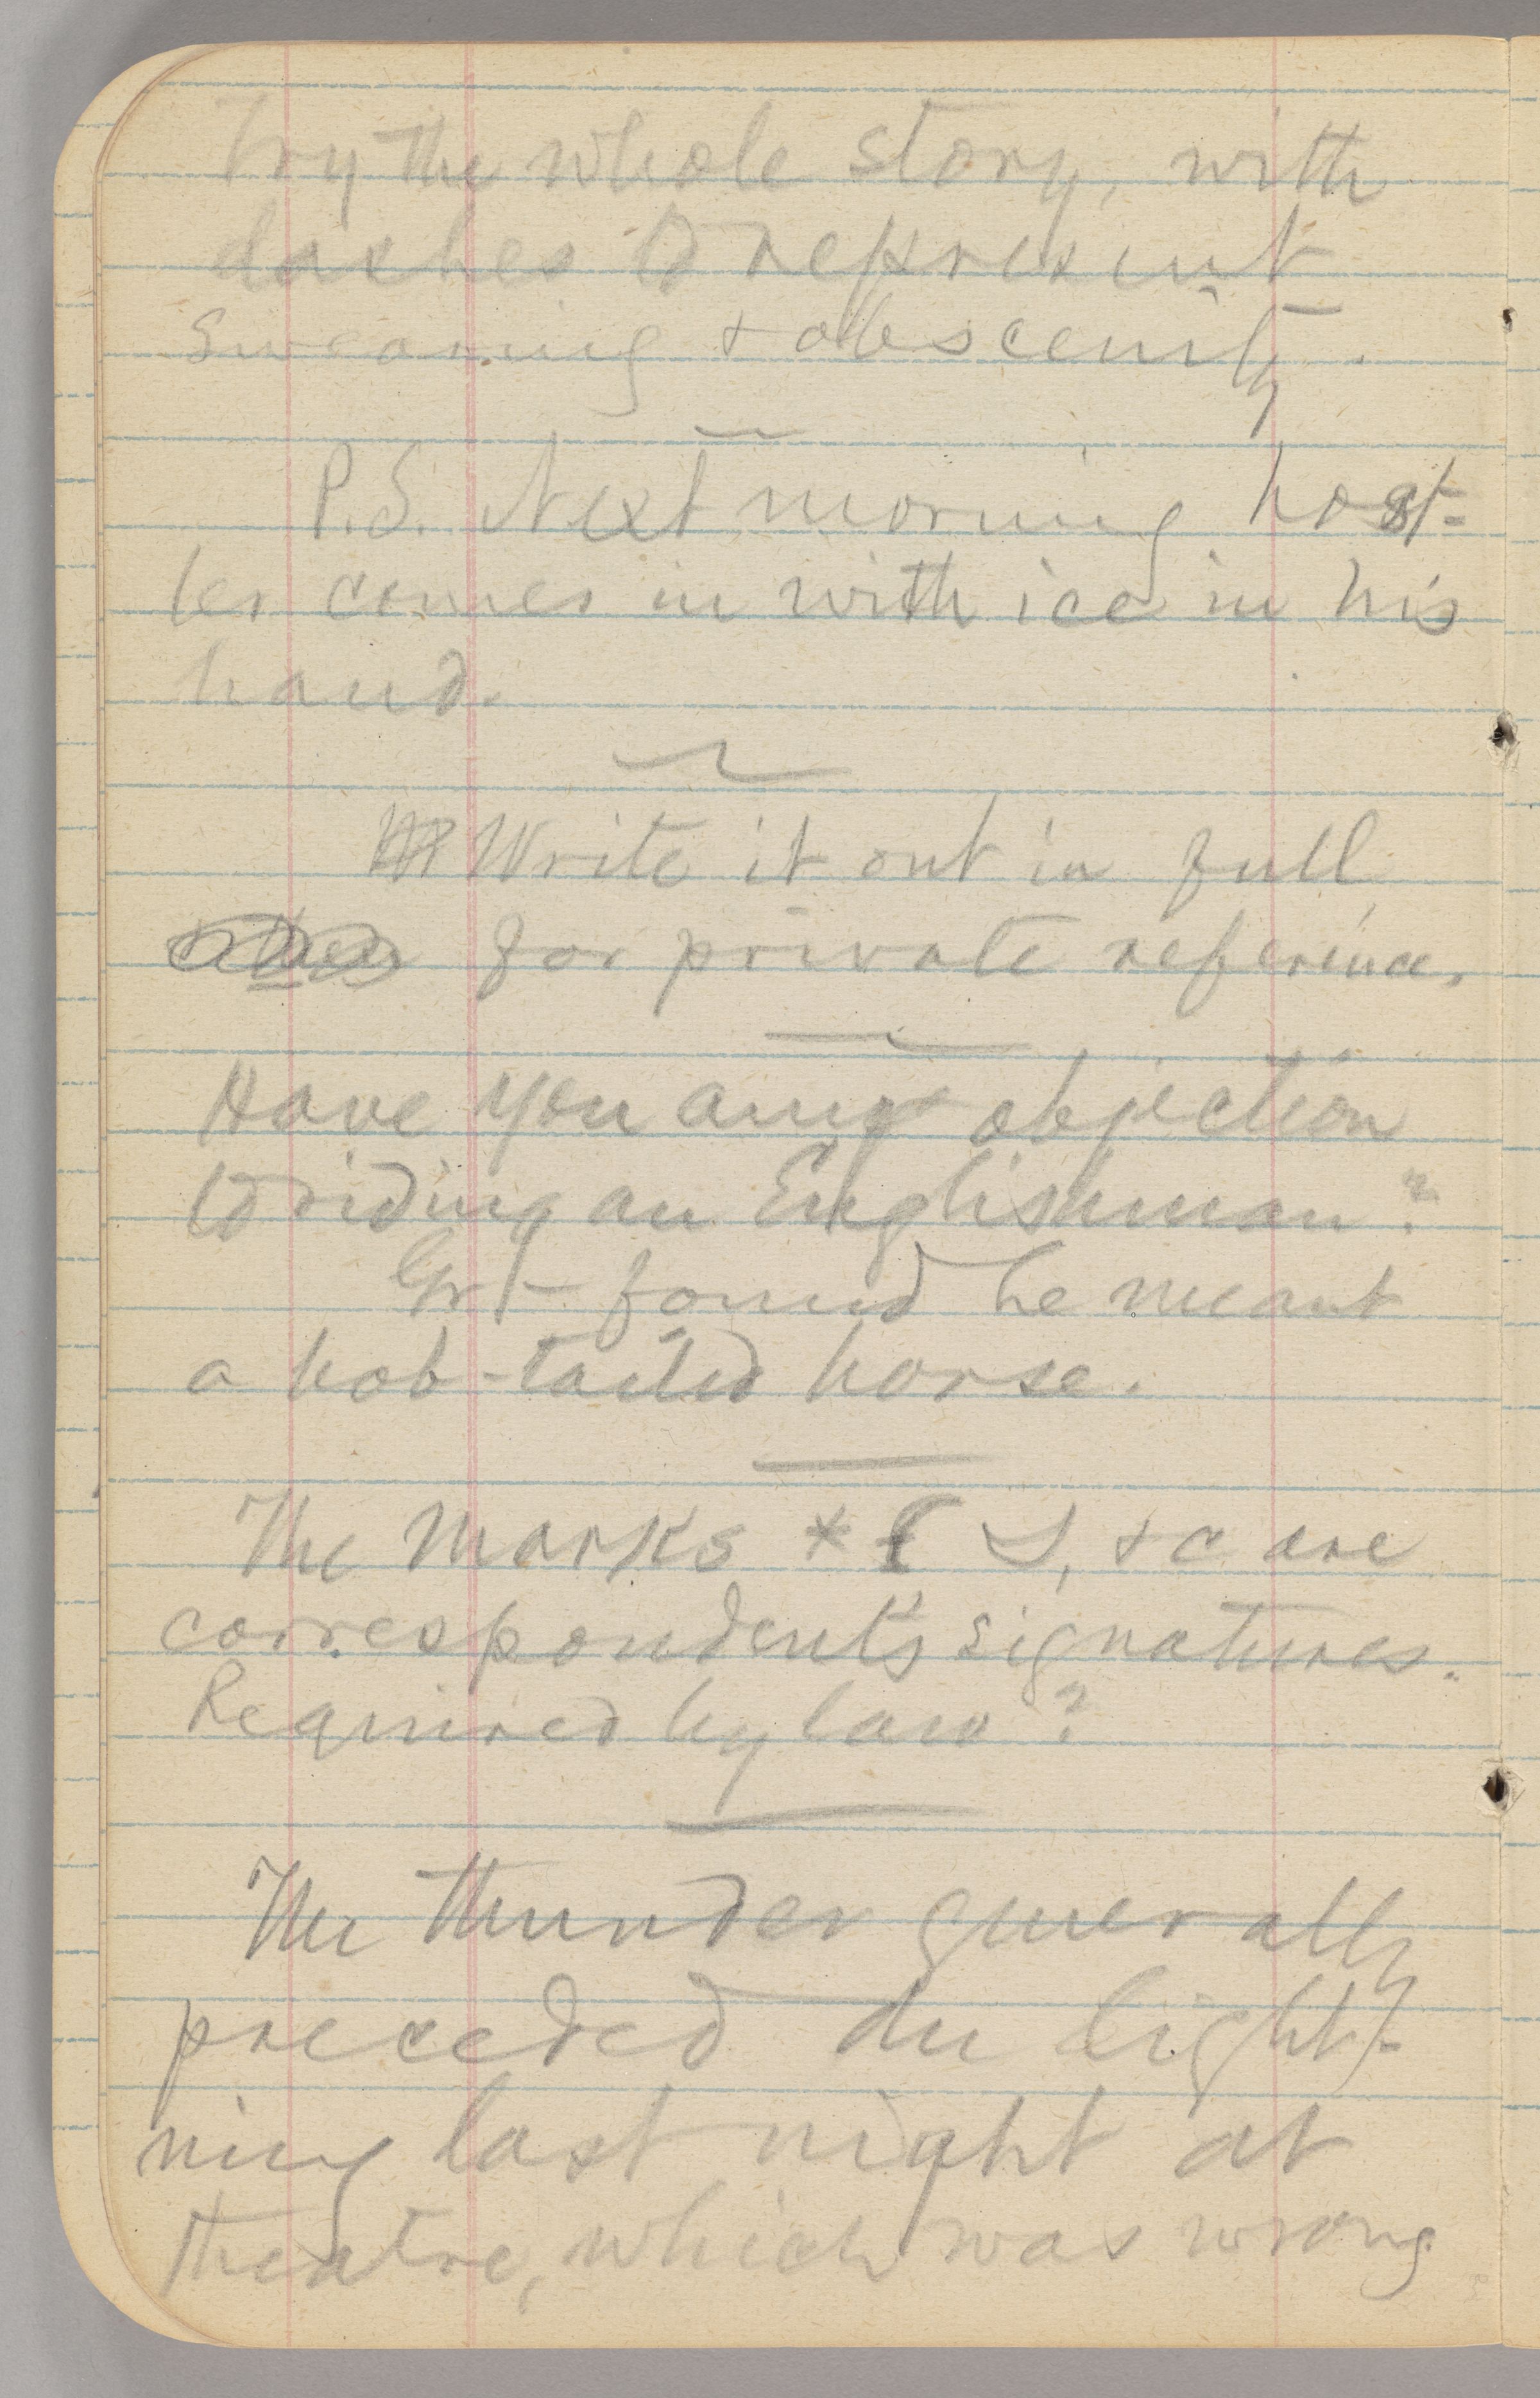 Try the whole story, with
dashes to represent
swearing & obscenity.
P.S. Next morning host-
ler comes in with ice in his
hand.
Write it out in full
for private reference.
Have you any objection
to riding an Englishman?
found he meant
a bob-tailed horse.
The marks * &c are
correspondent's signatures.
Required by law?
The thunder generally
preceded the light-
ning last night at
theatre, which was wrong